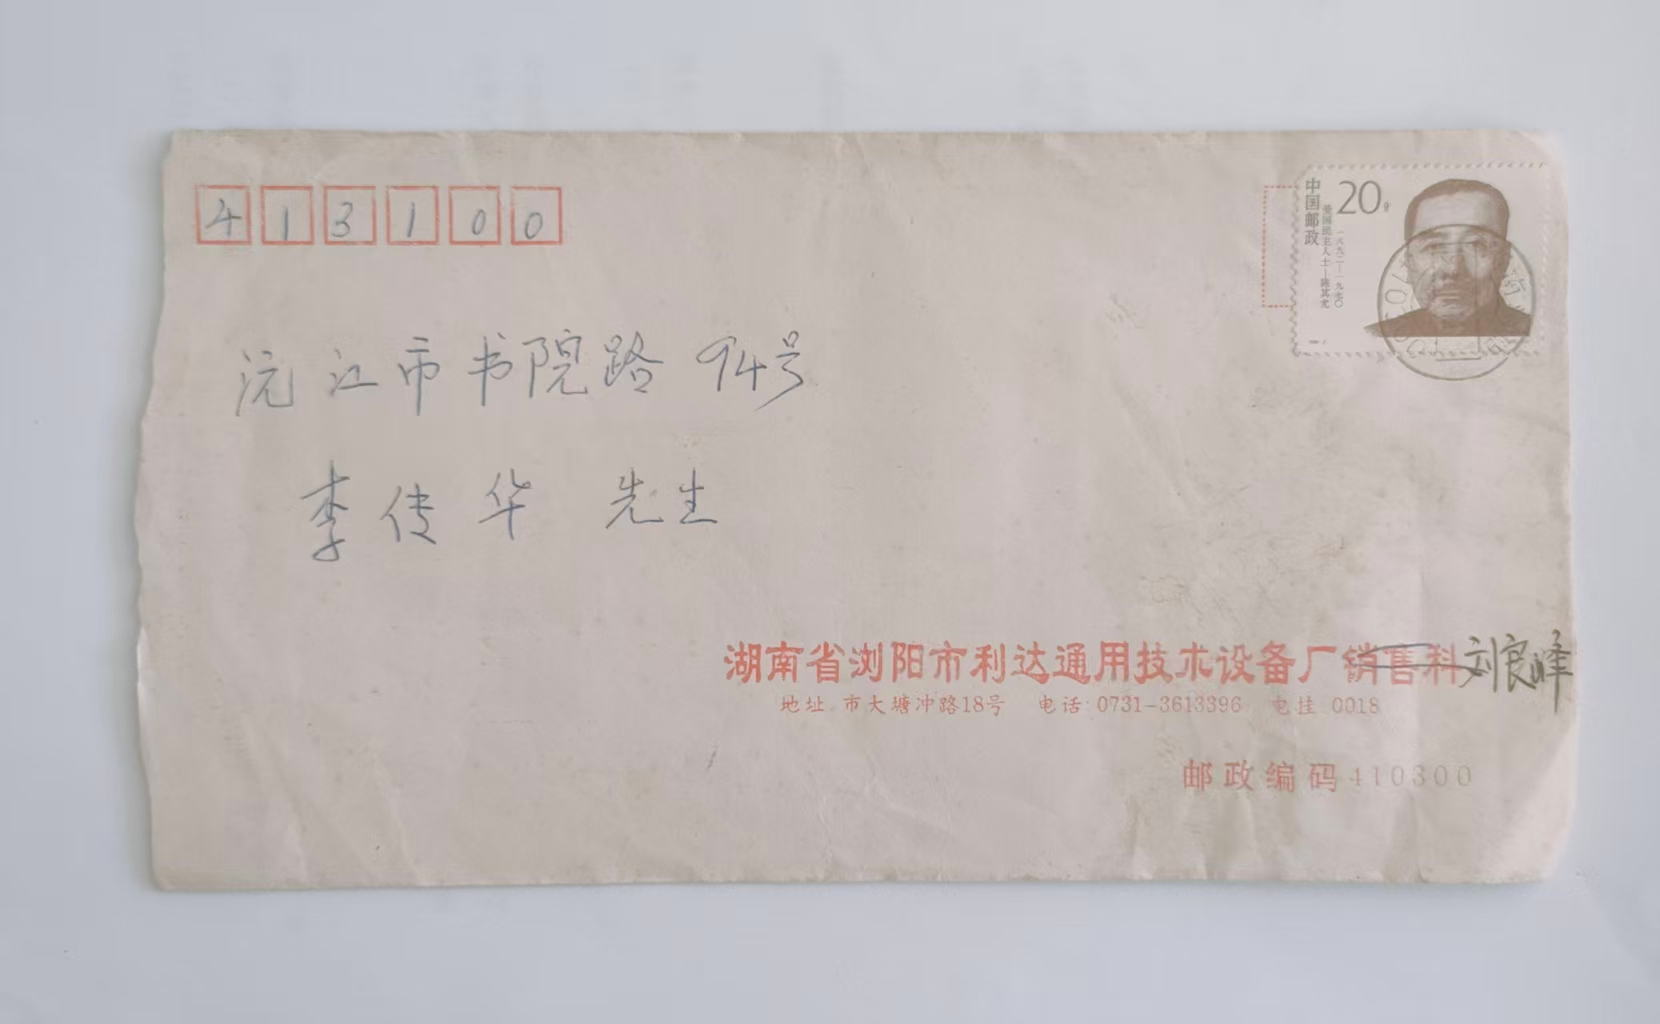 413100
中国邮政
20分
爱国民主人士—陈其尤
一八九二—一九七〇
沅江市书院路94号
李传华 先生
湖南省浏阳市利达通用技术设备厂销售科刘良峰
地址 市大塘冲路18号 电话:0731-3613396 电挂 0018
邮政编码410300